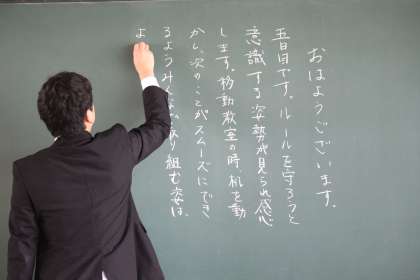 おはようございます。
五日目です。ルールを守ろうと
意識する姿勢が見られ感心
します。移動教室の時、机を動
かし、次のことがスムーズにでき
るようみんなで取り組む姿は、
よ